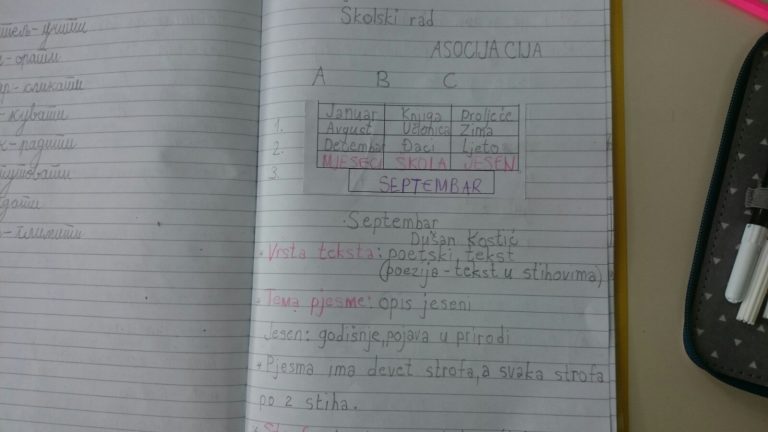 тељ-учити
орати
кликати
-кувати
-радити
Školski rad
ASOCIJACIJA
A B C
Januar Knjiga Proljeće
1. Avgust Učionica Zima
2. Decembar Đaci Ljeto
3. MJESECI ŠKOLA JESEN
SEPTEMBAR
Septembar
Dušan Kostić
Vrsta teksta: poetski tekst
(poezija-tekst u stihovima)
Tema pjesme: opis jeseni
Jesen: godišnje, pojava u prirodi
Pjesma ima devet strofa, a svaka strofa
po 2 stiha.